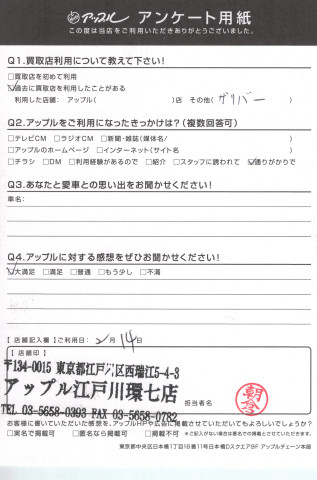 アップル アンケート用紙
この度は当店をご利用いただきありがとうございました。
Q1.買取店利用について教えて下さい!
□買取店を初めて利用
☑過去に買取店を利用したことがある
利用した店舗: アップル( )店 その他( ガリバー )
Q2.アップルをご利用になったきっかけは?(複数回答可)
□テレビCM □ラジオCM □新聞・雑誌(媒体名/ )
□アップルのホームページ □インターネット(サイト名 )
□チラシ □DM □利用経験があるので □紹介 □スタッフに誘われて ☑通りがかりで
Q3.あなたと愛車との思い出をお聞かせください!
車名:
Q4.アップルに対する感想をぜひお聞かせください!
☑大満足 □満足 □普通 □もう少し □不満
【店舗記入欄】ご利用日: 2月14日
【店舗印】
〒134-0015 東京都江戸川区西瑞江5-4-3
アップル江戸川環七店
TEL 03-5658-0393 FAX 03-5658-0782
担当者名 朝倉
お客様に書いていただいた感想を、アップルHPや広告に掲載させていただいてもよろしいでしょうか?
□実名で掲載可 □匿名なら掲載可 □掲載不可 ※ご記入がない場合は匿名での掲載とさせていただきます。
東京都中央区日本橋1丁目16番11号日本橋Dスクエア9F アップルチェーン本部